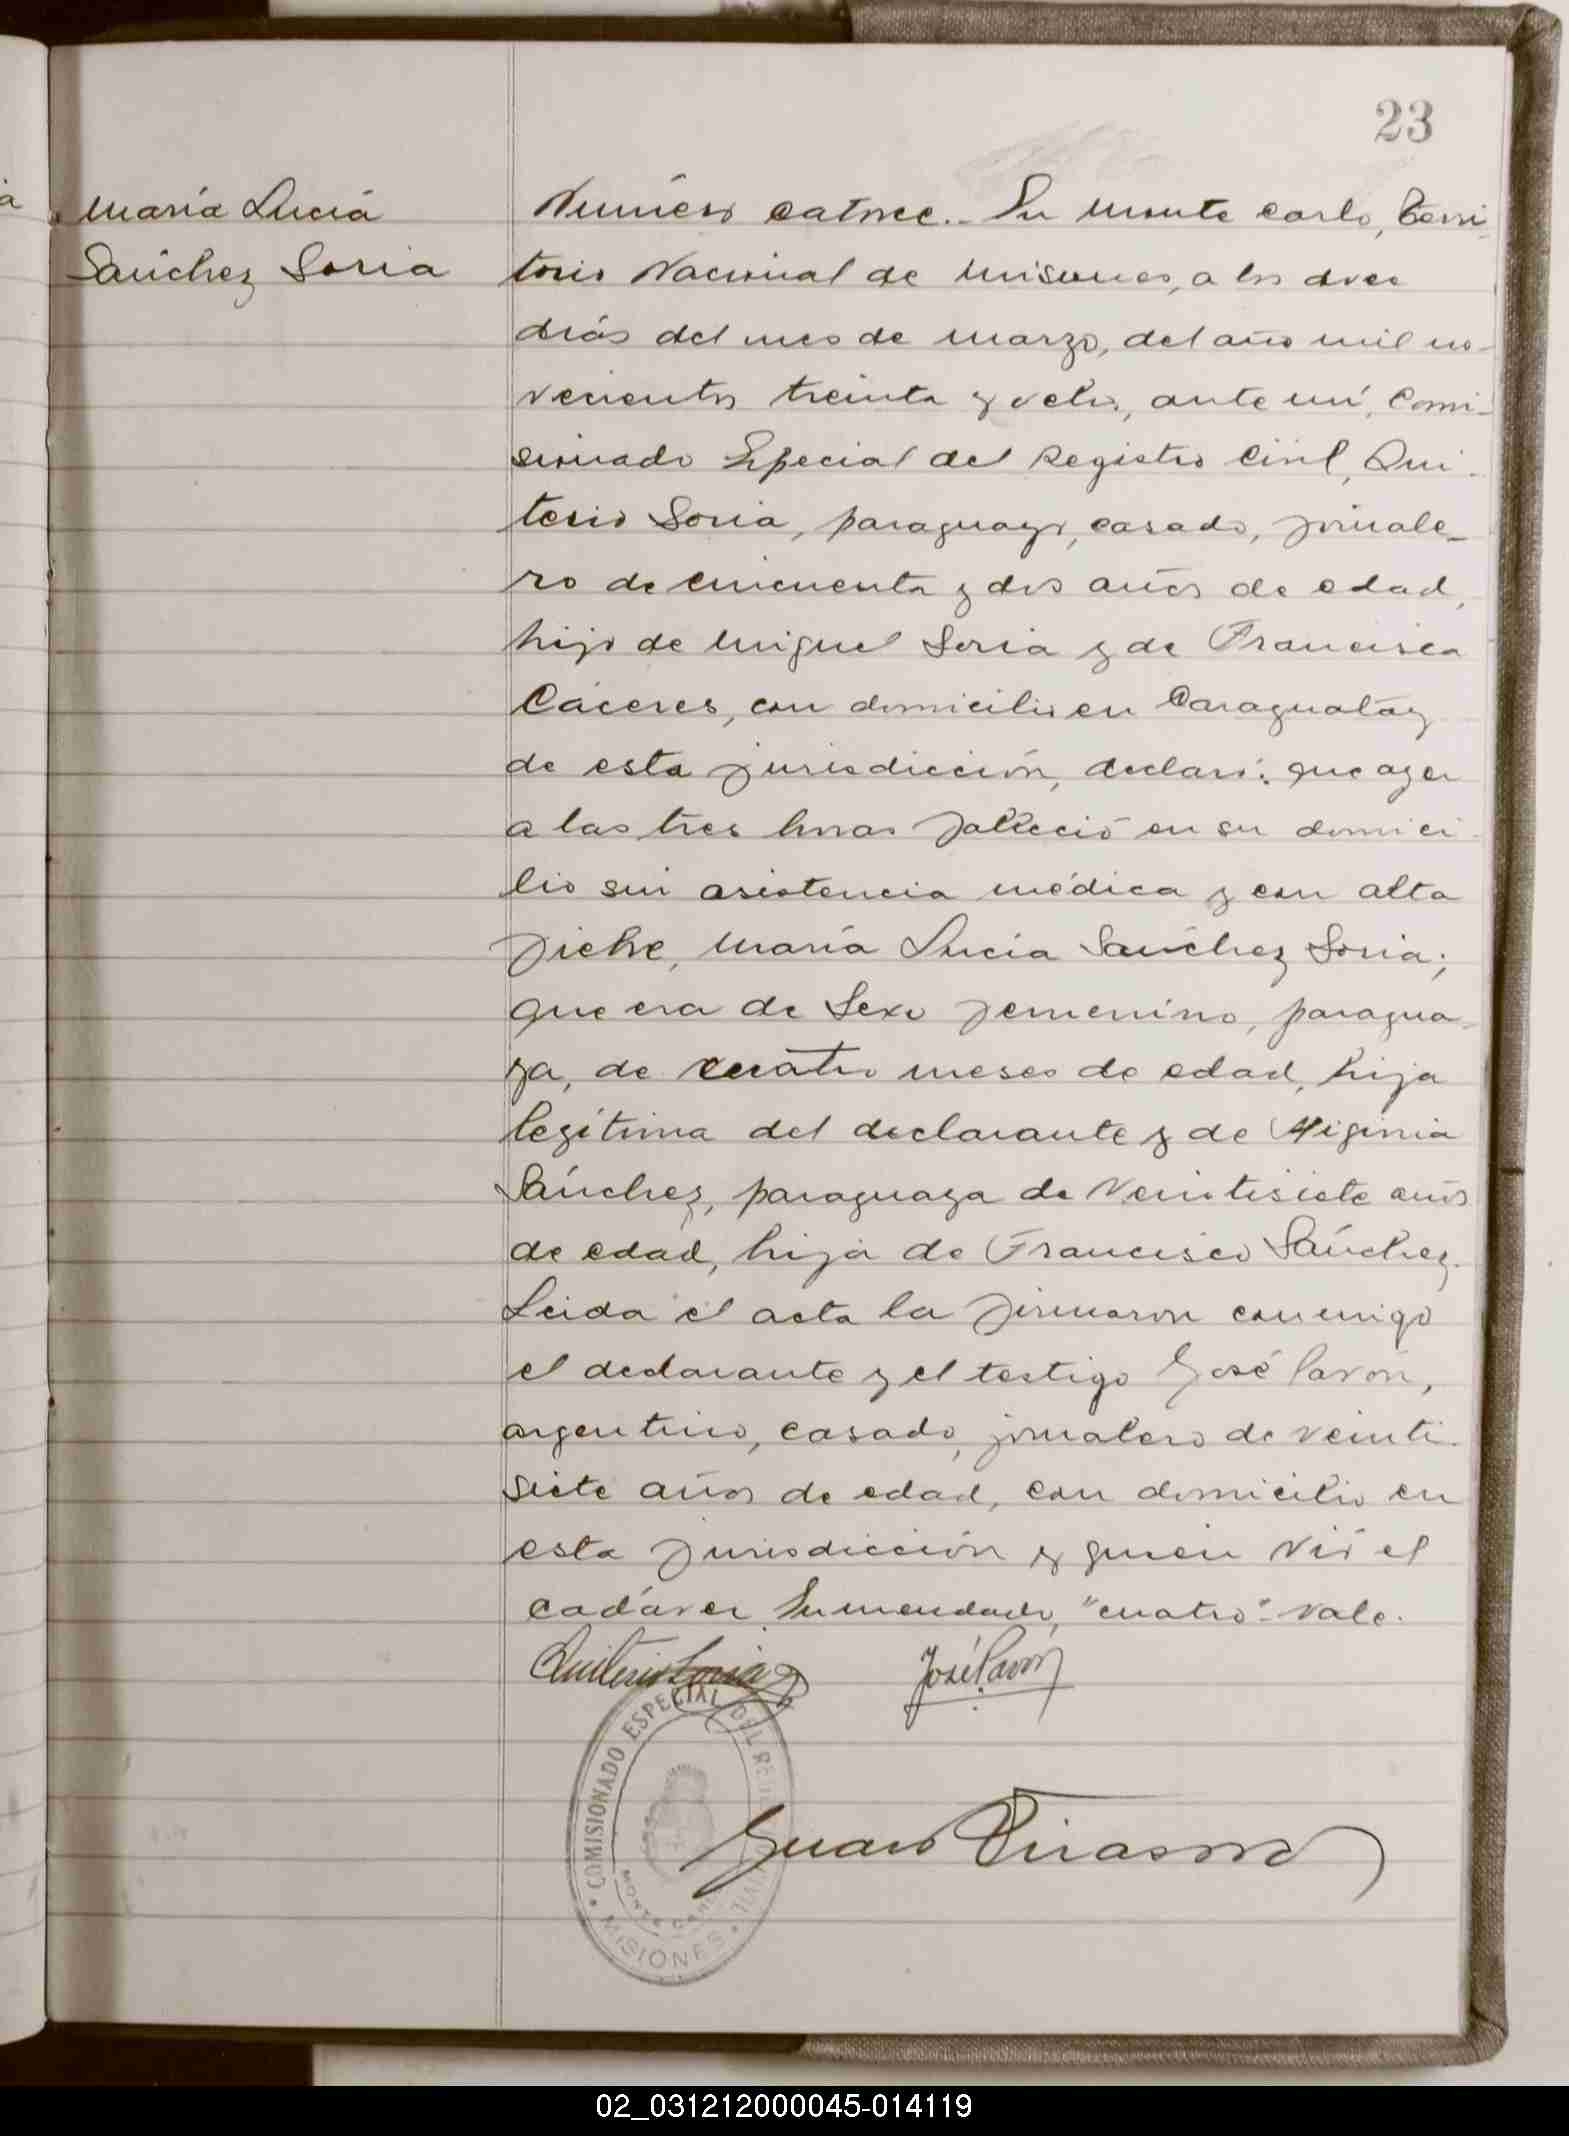 23
María Lucía
Sánchez Soria
Número catorce.- En Monte Carlo, Terri-
torio Nacional de Misiones, a los doce
días del mes de marzo, del año mil no-
vecientos treinta y ocho, ante mí, Comi-
sionado Especial del Registro Civil, Qui-
terio Soria, paraguayo, casado, jornale-
ro de cincuenta y dos años de edad,
hijo de Miguel Soria y de Francisca
Cáceres, con domicilio en Caraguatay
de esta jurisdicción, declaró: que ayer
a las tres horas falleció en su domici-
lio sin asistencia médica y con alta
fiebre, María Lucía Sánchez Soria;
que era de sexo femenino, paragua-
ya, de cuatro meses de edad, hija
legítima del declarante y de Higinia
Sánchez, paraguaya de veintisiete años
de edad, hija de Francisco Sánchez.
Leida el acta la firmaron conmigo
el declarante y el testigo José Pavón,
argentino, casado, jornalero de veinti-
siete años de edad, con domicilio en
esta jurisdicción y quien vió el
cadáver. Enmendado, "cuatro"- vale.
Quiterio Soria José Pavón
COMISIONADO ESPECIAL DEL
MONTE CARLO
MISIONES
02_031212000045-014119